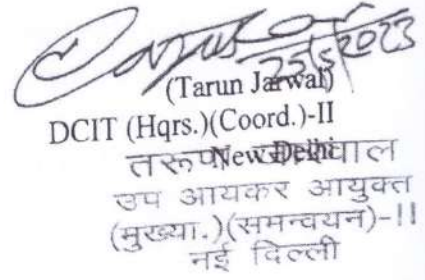 25/5/2023
(Tarun Jarwal)
DCIT (Hqrs.)(Coord.)-II
New Delhi
तरूण जारवाल
उप आयकर आयुक्त
(मुख्या.)(समन्वयन)-II
नई दिल्ली